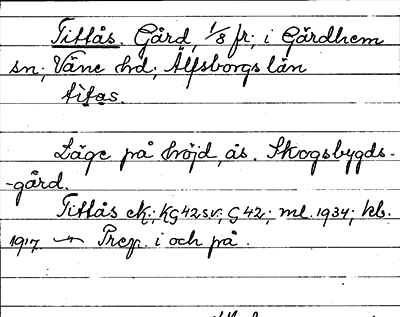 Tittås. Gård, 1/8 fr; i Gärdhem
sn; Väne hd; Älfsborgs län
titas.
Läge på höjd, ås. Skogsbygds-
-gård.
Tittås ek.; KG42sv; G42; ml. 1934; kb.
1917 Prep. i och på.